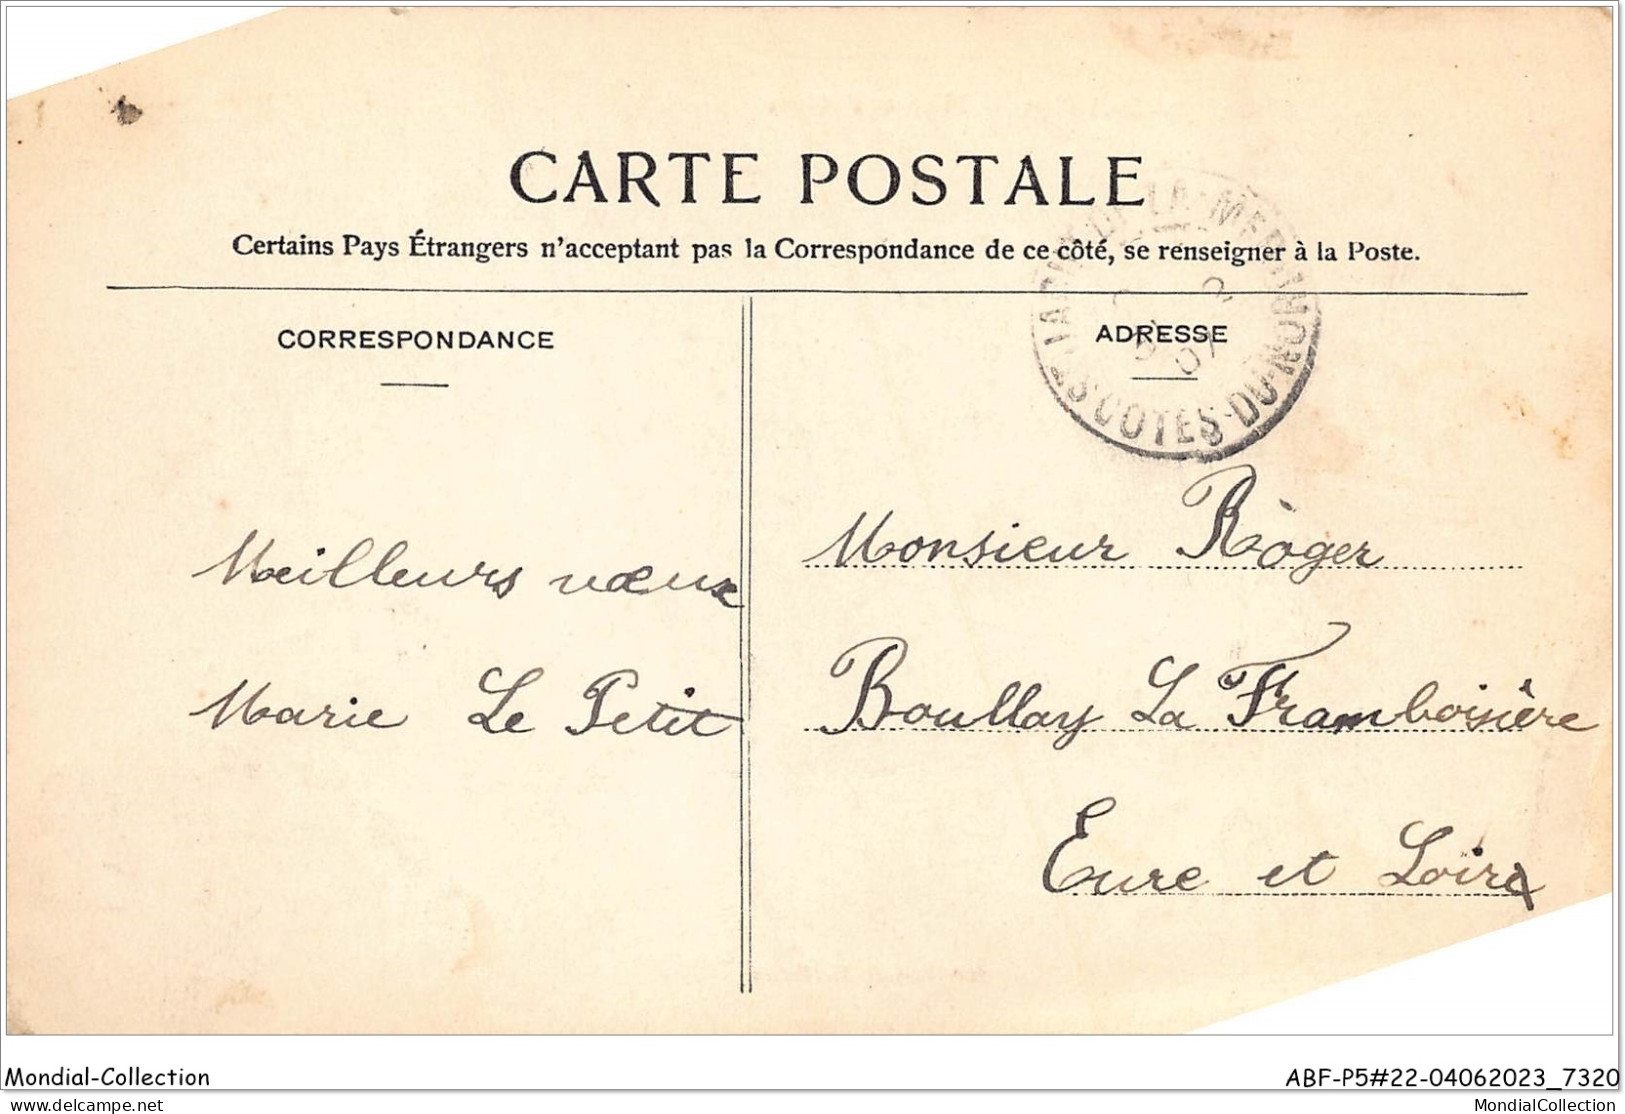 CARTE POSTALE
Certains Pays Étrangers n'acceptant pas la Correspondance de ce côté, se renseigner à la Poste.
CORRESPONDANCE
ADRESSE
CÔTES-DU-NORD
Meilleurs vœux
Marie Le Petit
Monsieur Roger
Boullay La Framboisière
Eure et Loire
Mondial-Collection
ABF-P5#22-04062023_7320
delcampe.net
MondialCollection